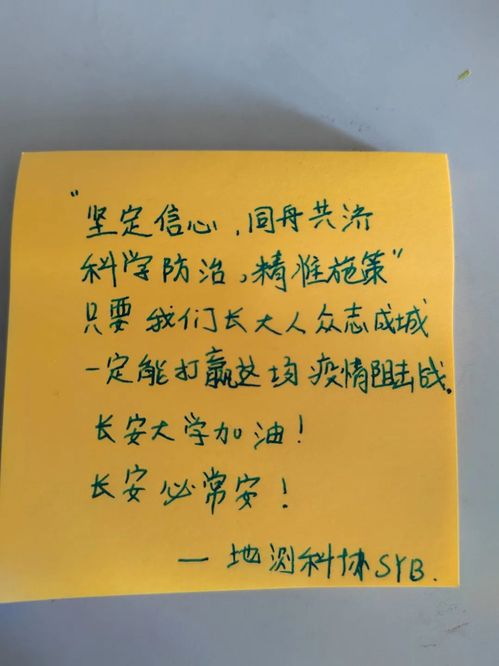 "坚定信心,同舟共济
科学防治,精准施策"
只要我们长大人众志成城
一定能打赢这场疫情阻击战.
长安大学加油!
长安必常安!
—地测科协SYB.